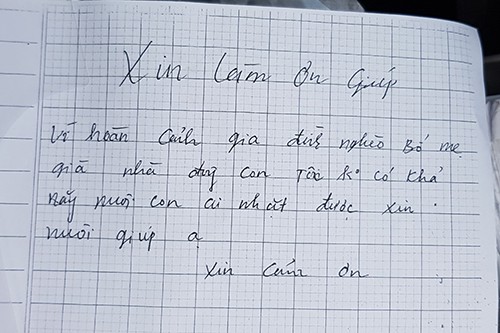 Xin làm ơn giúp
Vì hoàn cảnh gia đình nghèo Bố mẹ
già nhà đông con Tôi ko có khả
năng nuôi con ai nhặt được xin
nuôi giúp ạ
xin cảm ơn